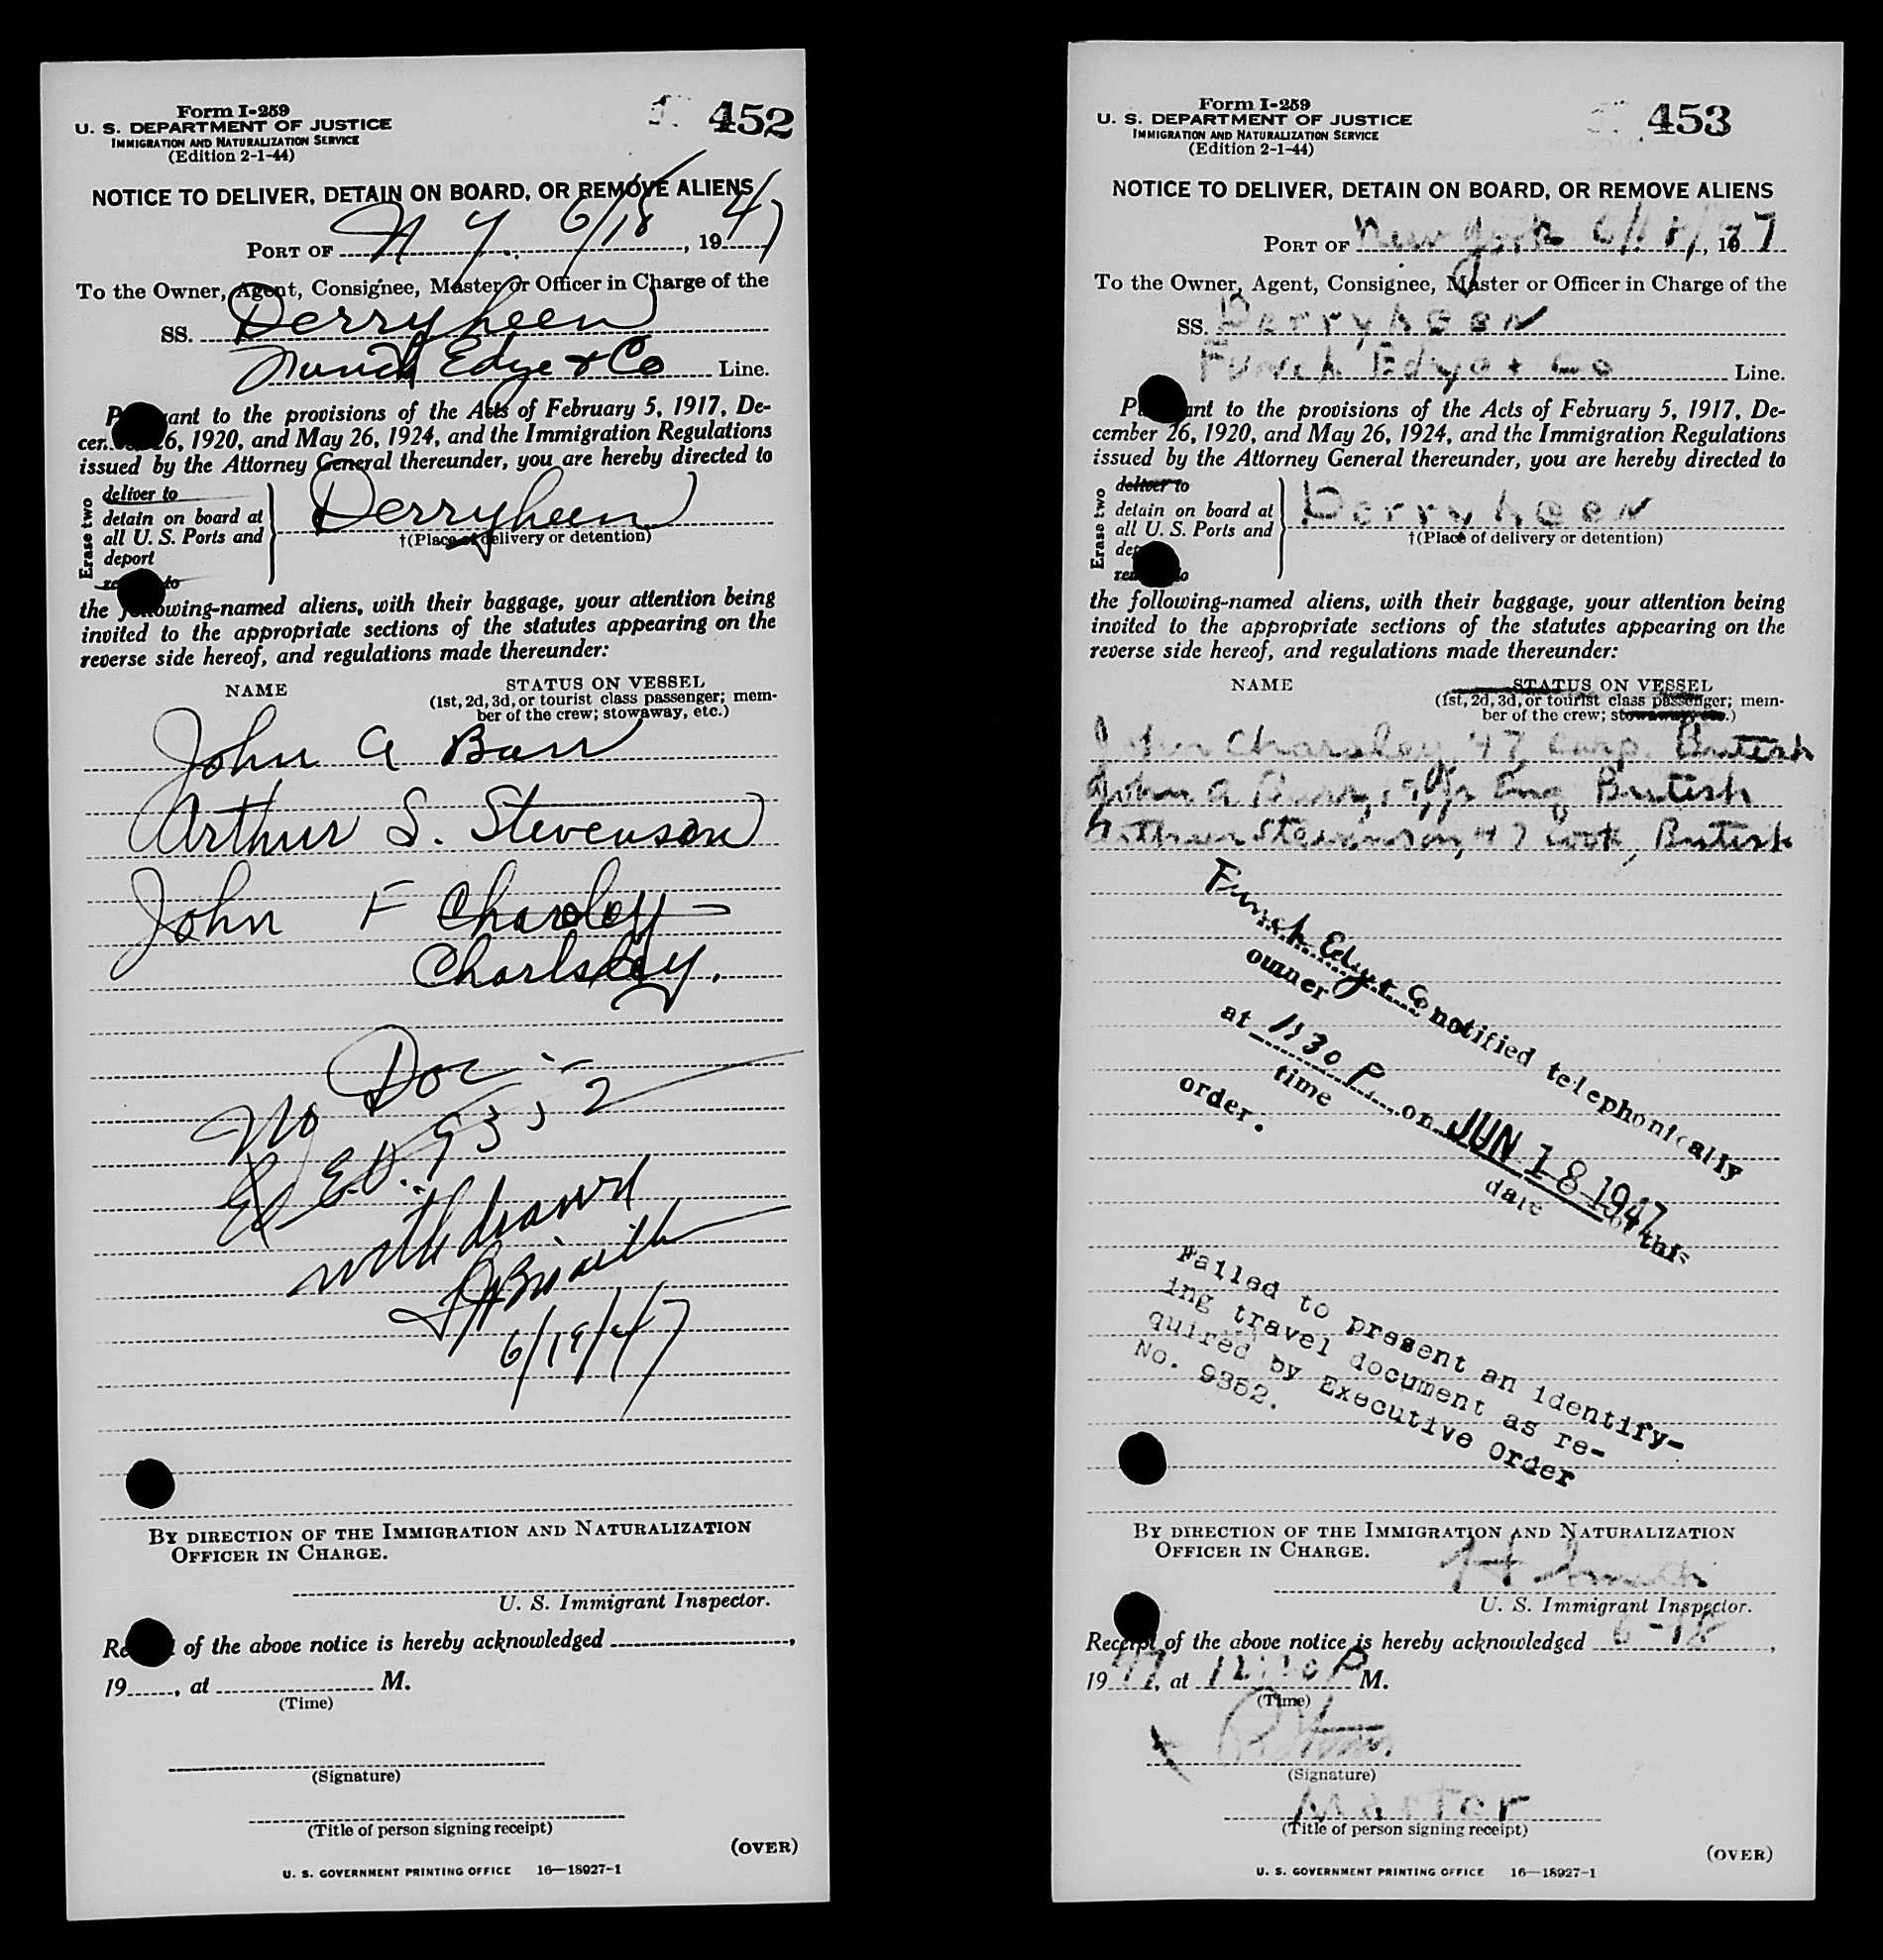 Form I-259
U. S. DEPARTMENT OF JUSTICE
IMMIGRATION AND NATURALIZATION SERVICE
(Edition 2-1-44)
452
NOTICE TO DELIVER, DETAIN ON BOARD, OR REMOVE ALIENS
PORT OF N Y. 6/18, 1947
To the Owner, Agent, Consignee, Master or Officer in Charge of the
SS. Derryheen
Funch Edye & Co Line.
Pursuant to the provisions of the Acts of February 5, 1917, De-
cember 26, 1920, and May 26, 1924, and the Immigration Regulations
issued by the Attorney General thereunder, you are hereby directed to
Erase two
deliver to
detain on board at
all U. S. Ports and
deport
remove to
Derryheen
†(Place of delivery or detention)
the following-named aliens, with their baggage, your attention being
invited to the appropriate sections of the statutes appearing on the
reverse side hereof, and regulations made thereunder:
NAME
STATUS ON VESSEL
(1st, 2d, 3d, or tourist class passenger; mem-
ber of the crew; stowaway, etc.)
John A Barr
Arthur S. Stevenson
John F Charsley
Charlsley.
No Doc
E.O. 9352
withdrawn
6/19/47
BY DIRECTION OF THE IMMIGRATION AND NATURALIZATION
OFFICER IN CHARGE.
U. S. Immigrant Inspector.
Receipt of the above notice is hereby acknowledged ,
19 , at M.
(Time)
(Signature)
(Title of person signing receipt)
(OVER)
U. S. GOVERNMENT PRINTING OFFICE 16—18927-1
Form I-259
U. S. DEPARTMENT OF JUSTICE
IMMIGRATION AND NATURALIZATION SERVICE
(Edition 2-1-44)
453
NOTICE TO DELIVER, DETAIN ON BOARD, OR REMOVE ALIENS
PORT OF New York 6/18/47, 1947
To the Owner, Agent, Consignee, Master or Officer in Charge of the
SS. Derryheen
Funch Edye & Co Line.
Pursuant to the provisions of the Acts of February 5, 1917, De-
cember 26, 1920, and May 26, 1924, and the Immigration Regulations
issued by the Attorney General thereunder, you are hereby directed to
Erase two
deliver to
detain on board at
all U. S. Ports and
deport
remove to
Derryheen
†(Place of delivery or detention)
the following-named aliens, with their baggage, your attention being
invited to the appropriate sections of the statutes appearing on the
reverse side hereof, and regulations made thereunder:
NAME
STATUS ON VESSEL
(1st, 2d, 3d, or tourist class passenger; mem-
ber of the crew; stowaway, etc.)
John Charsley, 47 Carp. British
John A Barr, Jr Eng British
Arthur Stevenson, 47 Cook, British
Funch Edye & Co notified telephonically
owner
at 1130 P on JUN 18 1947 of this
time date
order.
Failed to present an identify-
ing travel document as re-
quired by Executive Order
No. 9352.
BY DIRECTION OF THE IMMIGRATION AND NATURALIZATION
OFFICER IN CHARGE.
H Smith
U. S. Immigrant Inspector.
Receipt of the above notice is hereby acknowledged 6-18,
1947, at P M.
(Time)
(Signature)
Master
(Title of person signing receipt)
(OVER)
U. S. GOVERNMENT PRINTING OFFICE 16—18927-1